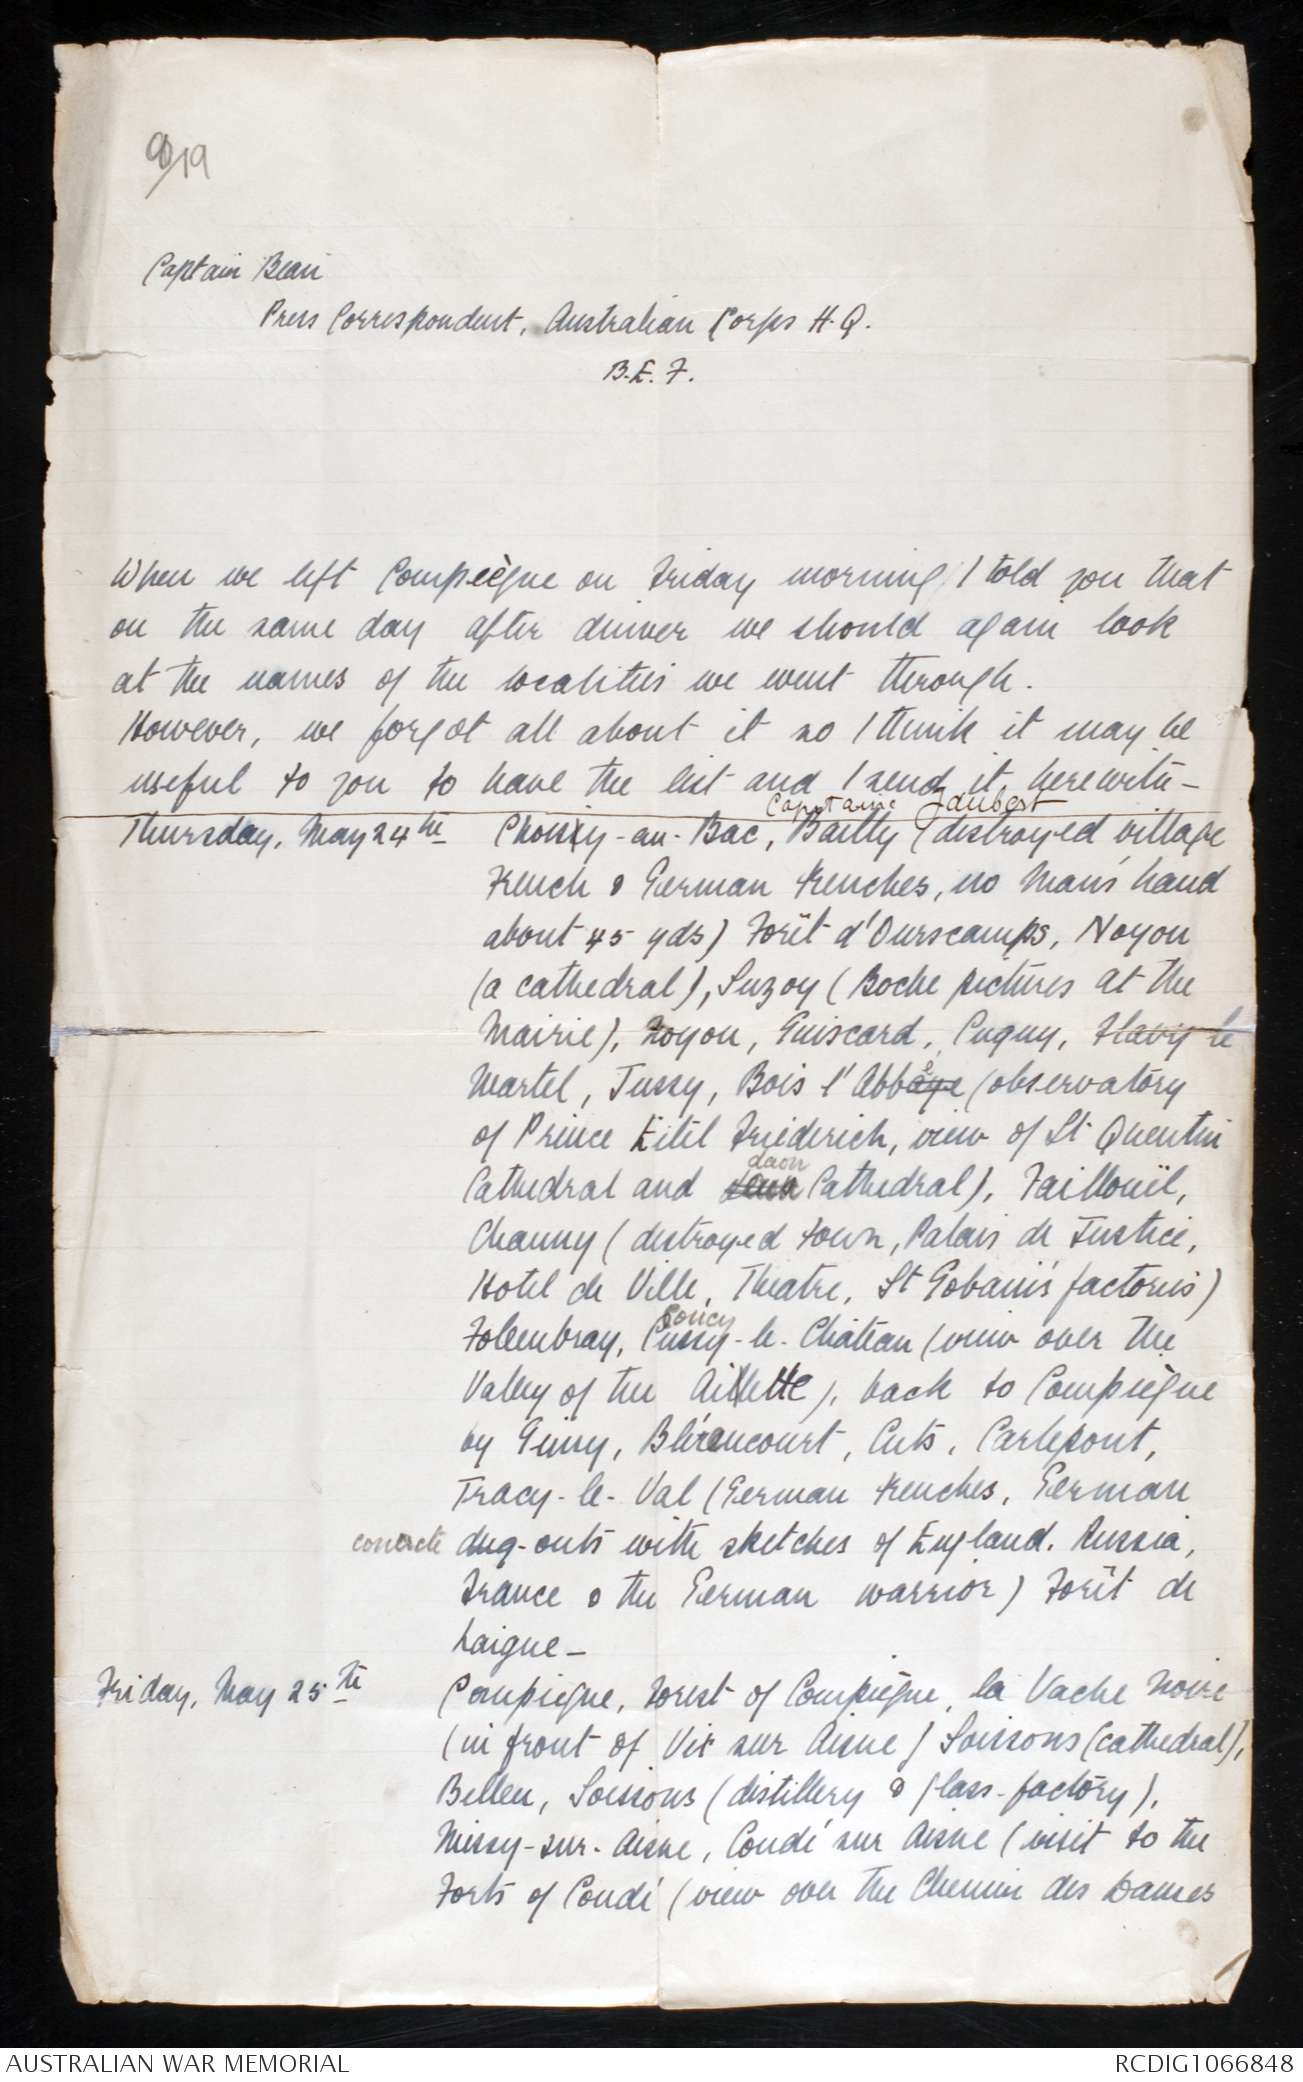 9/19
Captain Bean
Press Correspondent, Australian Corps H.Q.
B.E.F.
When we left Compiègne on Friday morning I told you that
on the same day after dinner we should again look
at the names of the localities we went through.
However, we forgot all about it so I think it may be
useful to you to have the list and I send it herewith –
Captaine Jaubert
Thursday, May 24th Choisy-au-Bac, Bailly (destroyed village
French & German trenches, no Man's hand
about 45 yds) Forêt d'Ourscamps, Noyon
(a cathedral), Suzoy (Boche pictures at the
Mairie), Noyon, Guiscard, Cugny, Flavy le
Martel, Jussy, Bois l'Abbaye (observatory
of Prince Eitel Friederich, view of St Quentin
Laon
Cathedral and Cathedral), Faillouël,
Chauny (destroyed town, Palais de Justice,
Hotel de Ville, Theatre, St Gobain's factories)
Coucy
Folembray, Cussy-le-Château (view over the
Valley of the Ailette), back to Compiègne
by Guny, Blérancourt, Cuts, Carlepont,
Tracy-le-Val (German trenches, German
concrete dug-outs with sketches of England, Russia,
France & the German warrior) Forêt de
Laigue –
Friday, May 25th Compiègne, Forest of Compiègne, la Vache Noire
(in front of Vic sur Aisne) Soissons (cathedral),
Belleu, Soissons (distillery & glass-factory),
Missy-sur-Aisne, Condé sur Aisne (visit to the
Forts of Condé (view over the Chemin des Dames
AUSTRALIAN WAR MEMORIAL
RCDIG1066848